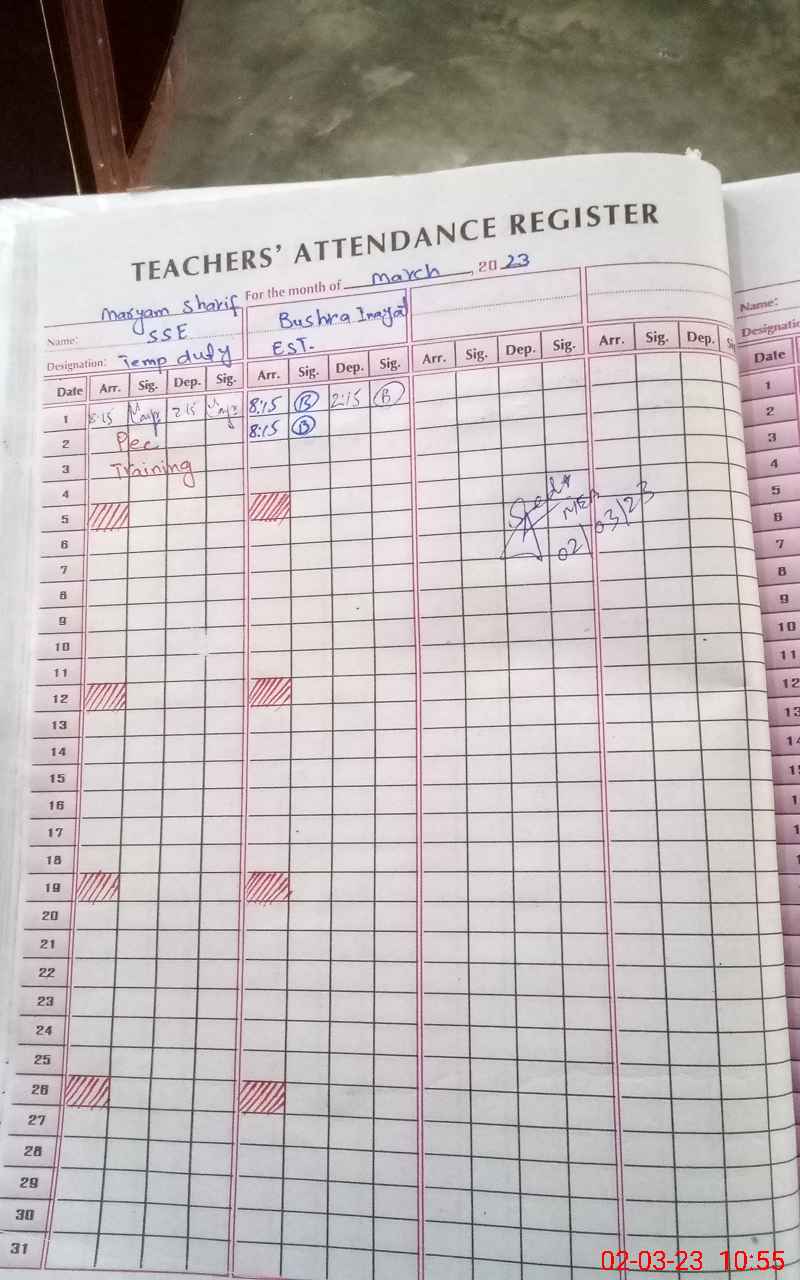 TEACHERS' ATTENDANCE REGISTER
For the month of March, 2023
Name: Maryam Sharif
SSE
Bushra Inayat
Designation: Temp duty
EST.
Date Arr. Sig. Dep. Sig. Arr. Sig. Dep. Sig. Arr. Sig. Dep. Sig. Arr. Sig. Dep.
1 8:15 2:15 8:15 B 2:15 B
2 Pec 8:15 B
3 Training
4
5
6
7
8
9
10
11
12
13
14
15
16
17
18
19
20
21
22
23
24
25
26
27
28
29
30
31
MEA
02/03/23
Name:
Date
1
2
3
4
5
6
7
8
9
10
11
12
02-03-23 10:55